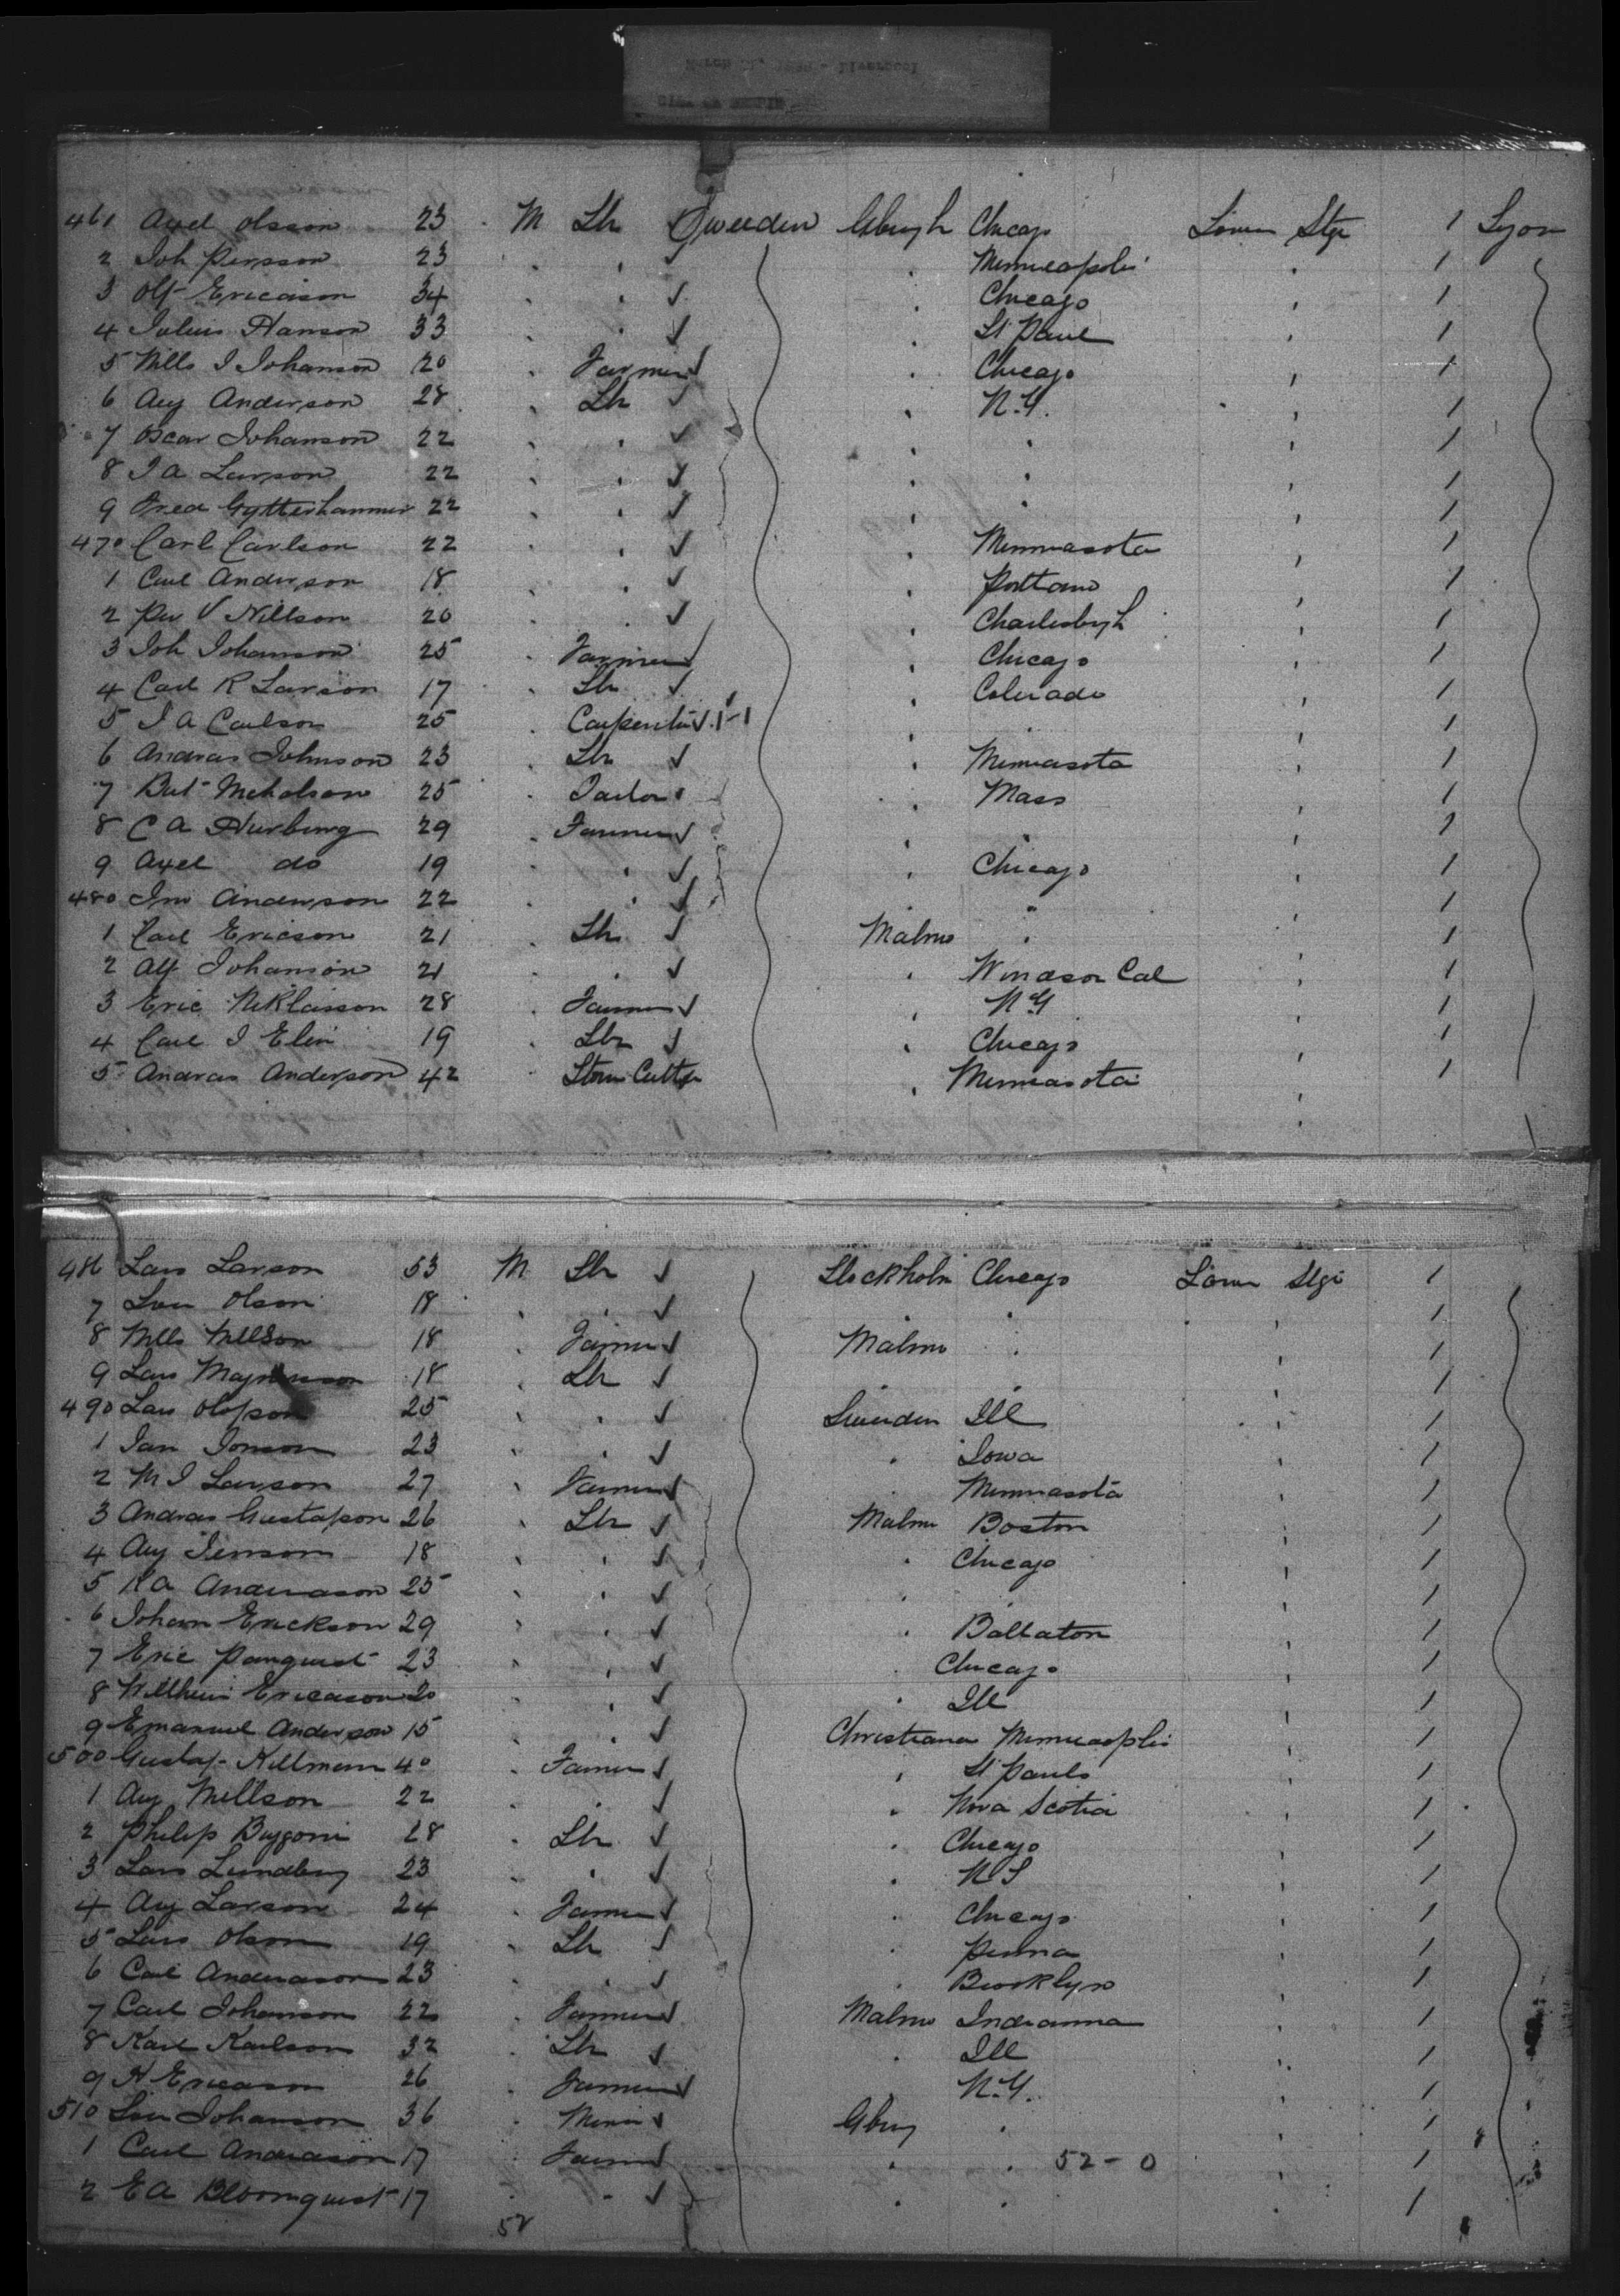 461 Axel Olsson 23 M Lbr Sweeden Gburgh Chicago Lower Stge 1 Lyon
2 Joh Persson 23 " " " Minneapolis " 1
3 Olf Ericason 34 " " " Chicago " 1
4 Julius Hanson 33 " " " St Paul " 1
5 Nills J Johanson 20 " Farmer " Chicago " 1
6 Aug Anderson 28 " Lbr " N.Y. " 1
7 Oscar Johanson 22 " " " " " 1
8 J A Larson 22 " " " " " 1
9 Fred Gytterhammer 22 " " " " 1
470 Carl Carlson 22 " " " Minnasota " 1
1 Carl Anderson 18 " " " Portland " 1
2 Per V Nillson 20 " " " Charlesbrgh " 1
3 Joh Johanson 25 " Farmer " Chicago " 1
4 Carl R Larson 17 " Lbr " Colerado " 1
5 J A Carlson 25 " Carpenter 1-1 " " " 1
6 Andras Johnson 23 " Lbr " Minnasota " 1
7 Nicholson 25 " Tailor " Mass " 1
8 C A Hurberg 29 " Farmer " " " 1
9 Axel do 19 " " " Chicago " 1
480 Anderson 22 " " " " " 1
1 Carl Ericson 21 " Lbr Malmo " " 1
2 Alf Johanson 21 " " " Windsor Cal " 1
3 Eric Niklasson 28 " Farmer " N.Y " 1
4 Carl J Elin 19 " Lbr " Chicago " 1
5 Andras Anderson 42 " Stone Cutter " Minnasota " 1
486 Lars Larson 53 M Lbr Stockholm Chicago Lower Stge 1
7 Olson 18 " " " " " 1
8 Nills Nillson 18 " Farmer Malmo " " 1
9 Lars Magnusson 18 " Lbr " " " 1
490 Lars Olofson 25 " " Sweeden Ill " 1
1 Jan Jonson 23 " " " Iowa " 1
2 M J Larson 27 " Farmer " Minnasota " 1
3 Andras Gustafson 26 " Lbr Malmo Boston " 1
4 Aug Jenson 18 " " " Chicago " 1
5 K A Anderason 25 " " " " " 1
6 Johan Erickson 29 " " " Ballaton " 1
7 Eric Panquist 23 " " " Chicago " 1
8 Wilhem Ericason 20 " " " Ill " 1
9 Emanuel Anderson 15 " " Christiana Minneaoplis " 1
500 Gustaf Killman 40 " Farmer " St Pauls " 1
1 Aug Nillson 22 " " " Nova Scotia " 1
2 Philip 28 " Lbr " Chicago " 1
3 Lars Lundberg 23 " " " " 1
4 Aug Larson 24 " Farmer " Chicago " 1
5 Lars Olson 19 " Lbr " Penna " 1
6 Carl Anderason 23 " " " Brooklyn " 1
7 Carl Johanson 22 " Farmer Malmo Indianna " 1
8 Karl Karlson 32 " Lbr " Ill " 1
9 H Ericason 26 " Farmer " N.Y. " 1
510 Johanson 36 " Miner Gburg " " 1
1 Carl Andrason 17 " Farmer " " 52 - 0 " 1
2 E A Bloomquist 17 " " " " " 1
52